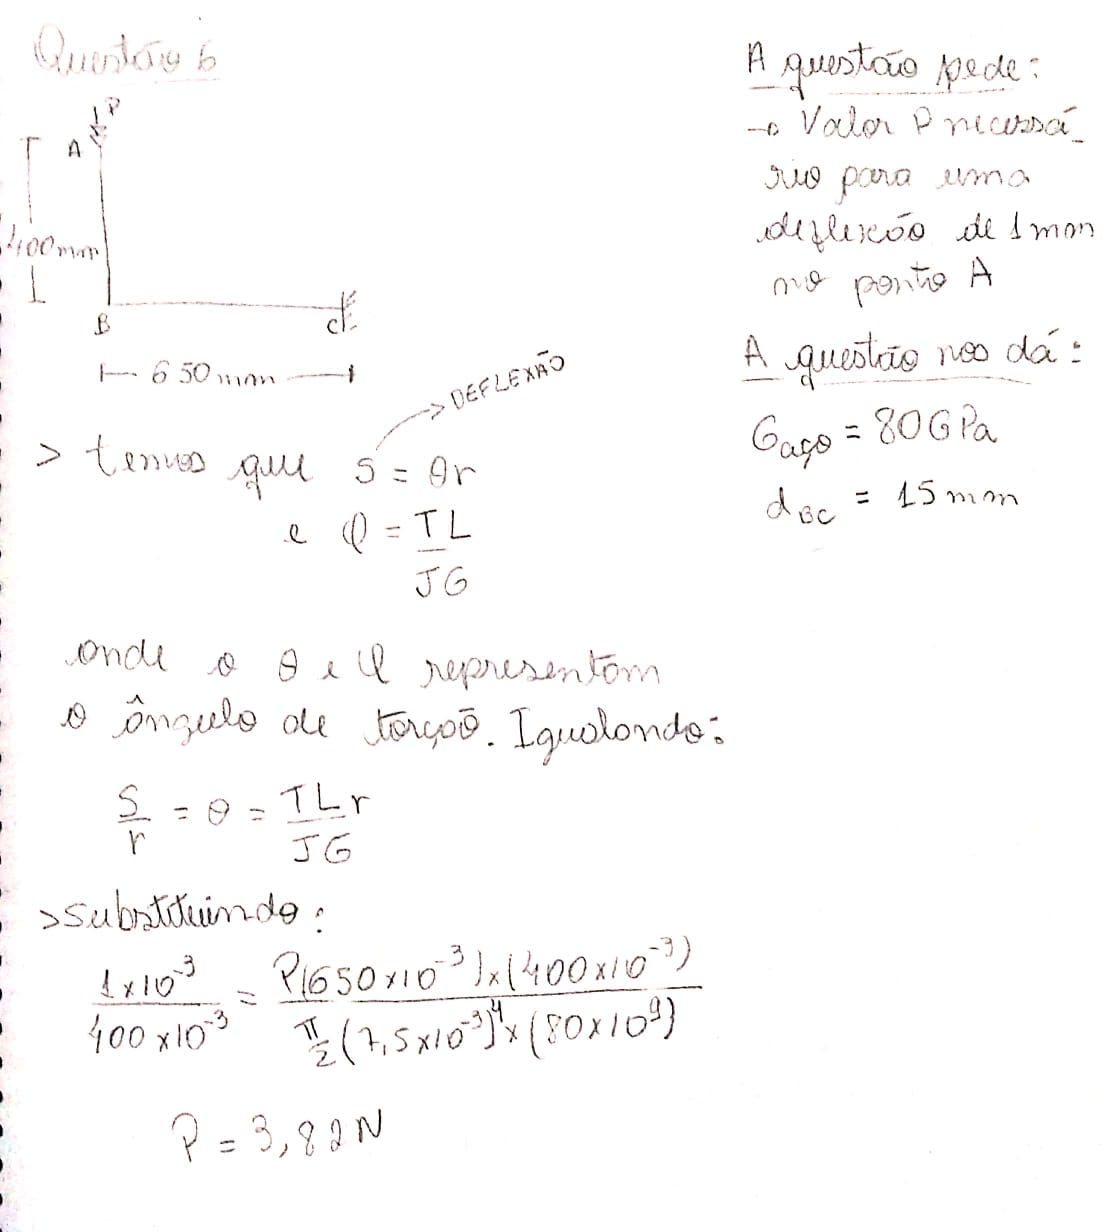 Questão 6
P
A
400mm
B
C
650mm
A questão pede:
→ Valor P necessá_
rio para uma
deflexão de 1mm
no ponto A
A questão nos dá:
Gaço = 80GPa
dBC = 15mm
> temos que S = θr
→ DEFLEXÃO
e φ = TL
JG
onde o θ e φ representam
o ângulo de torção. Igualando:
S/r = θ = TLr/JG
>Substituindo:
1x10⁻³/400x10⁻³ = P(650x10⁻³)x(400x10⁻³)/π/2(7,5x10⁻³)⁴x(80x10⁹)
P = 3,82N